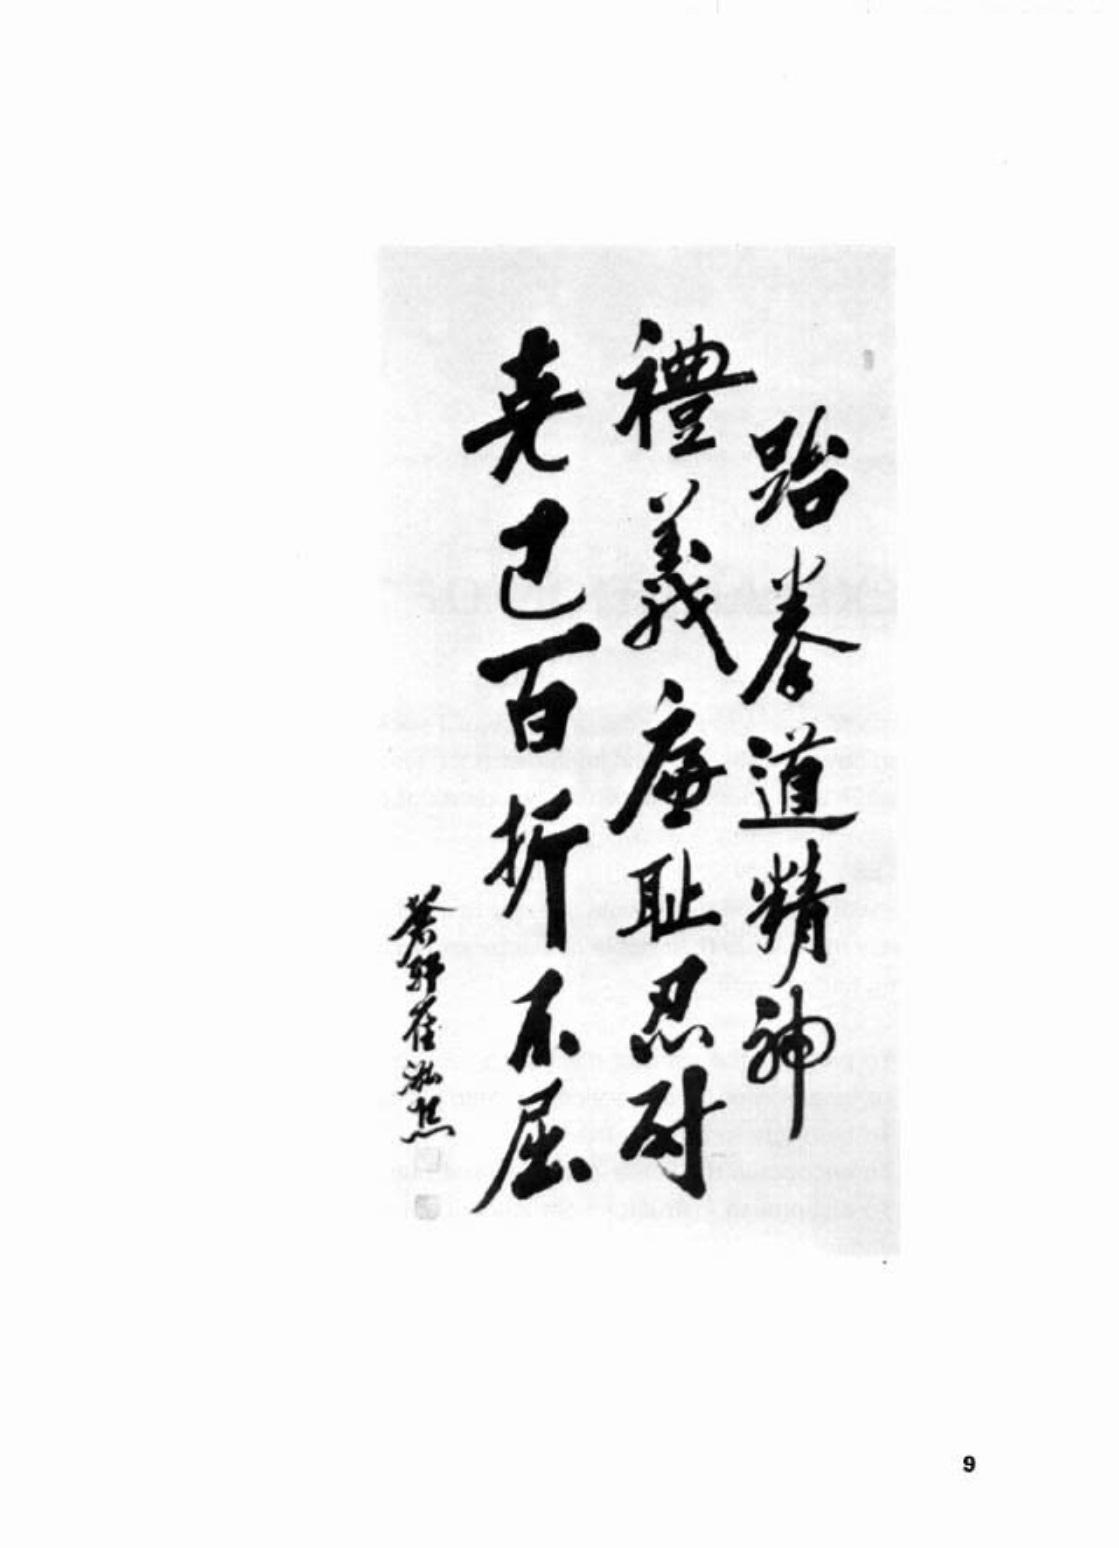 跆拳道精神
禮義廉耻忍耐
克己百折不屈
蒼軒崔泓熙
9